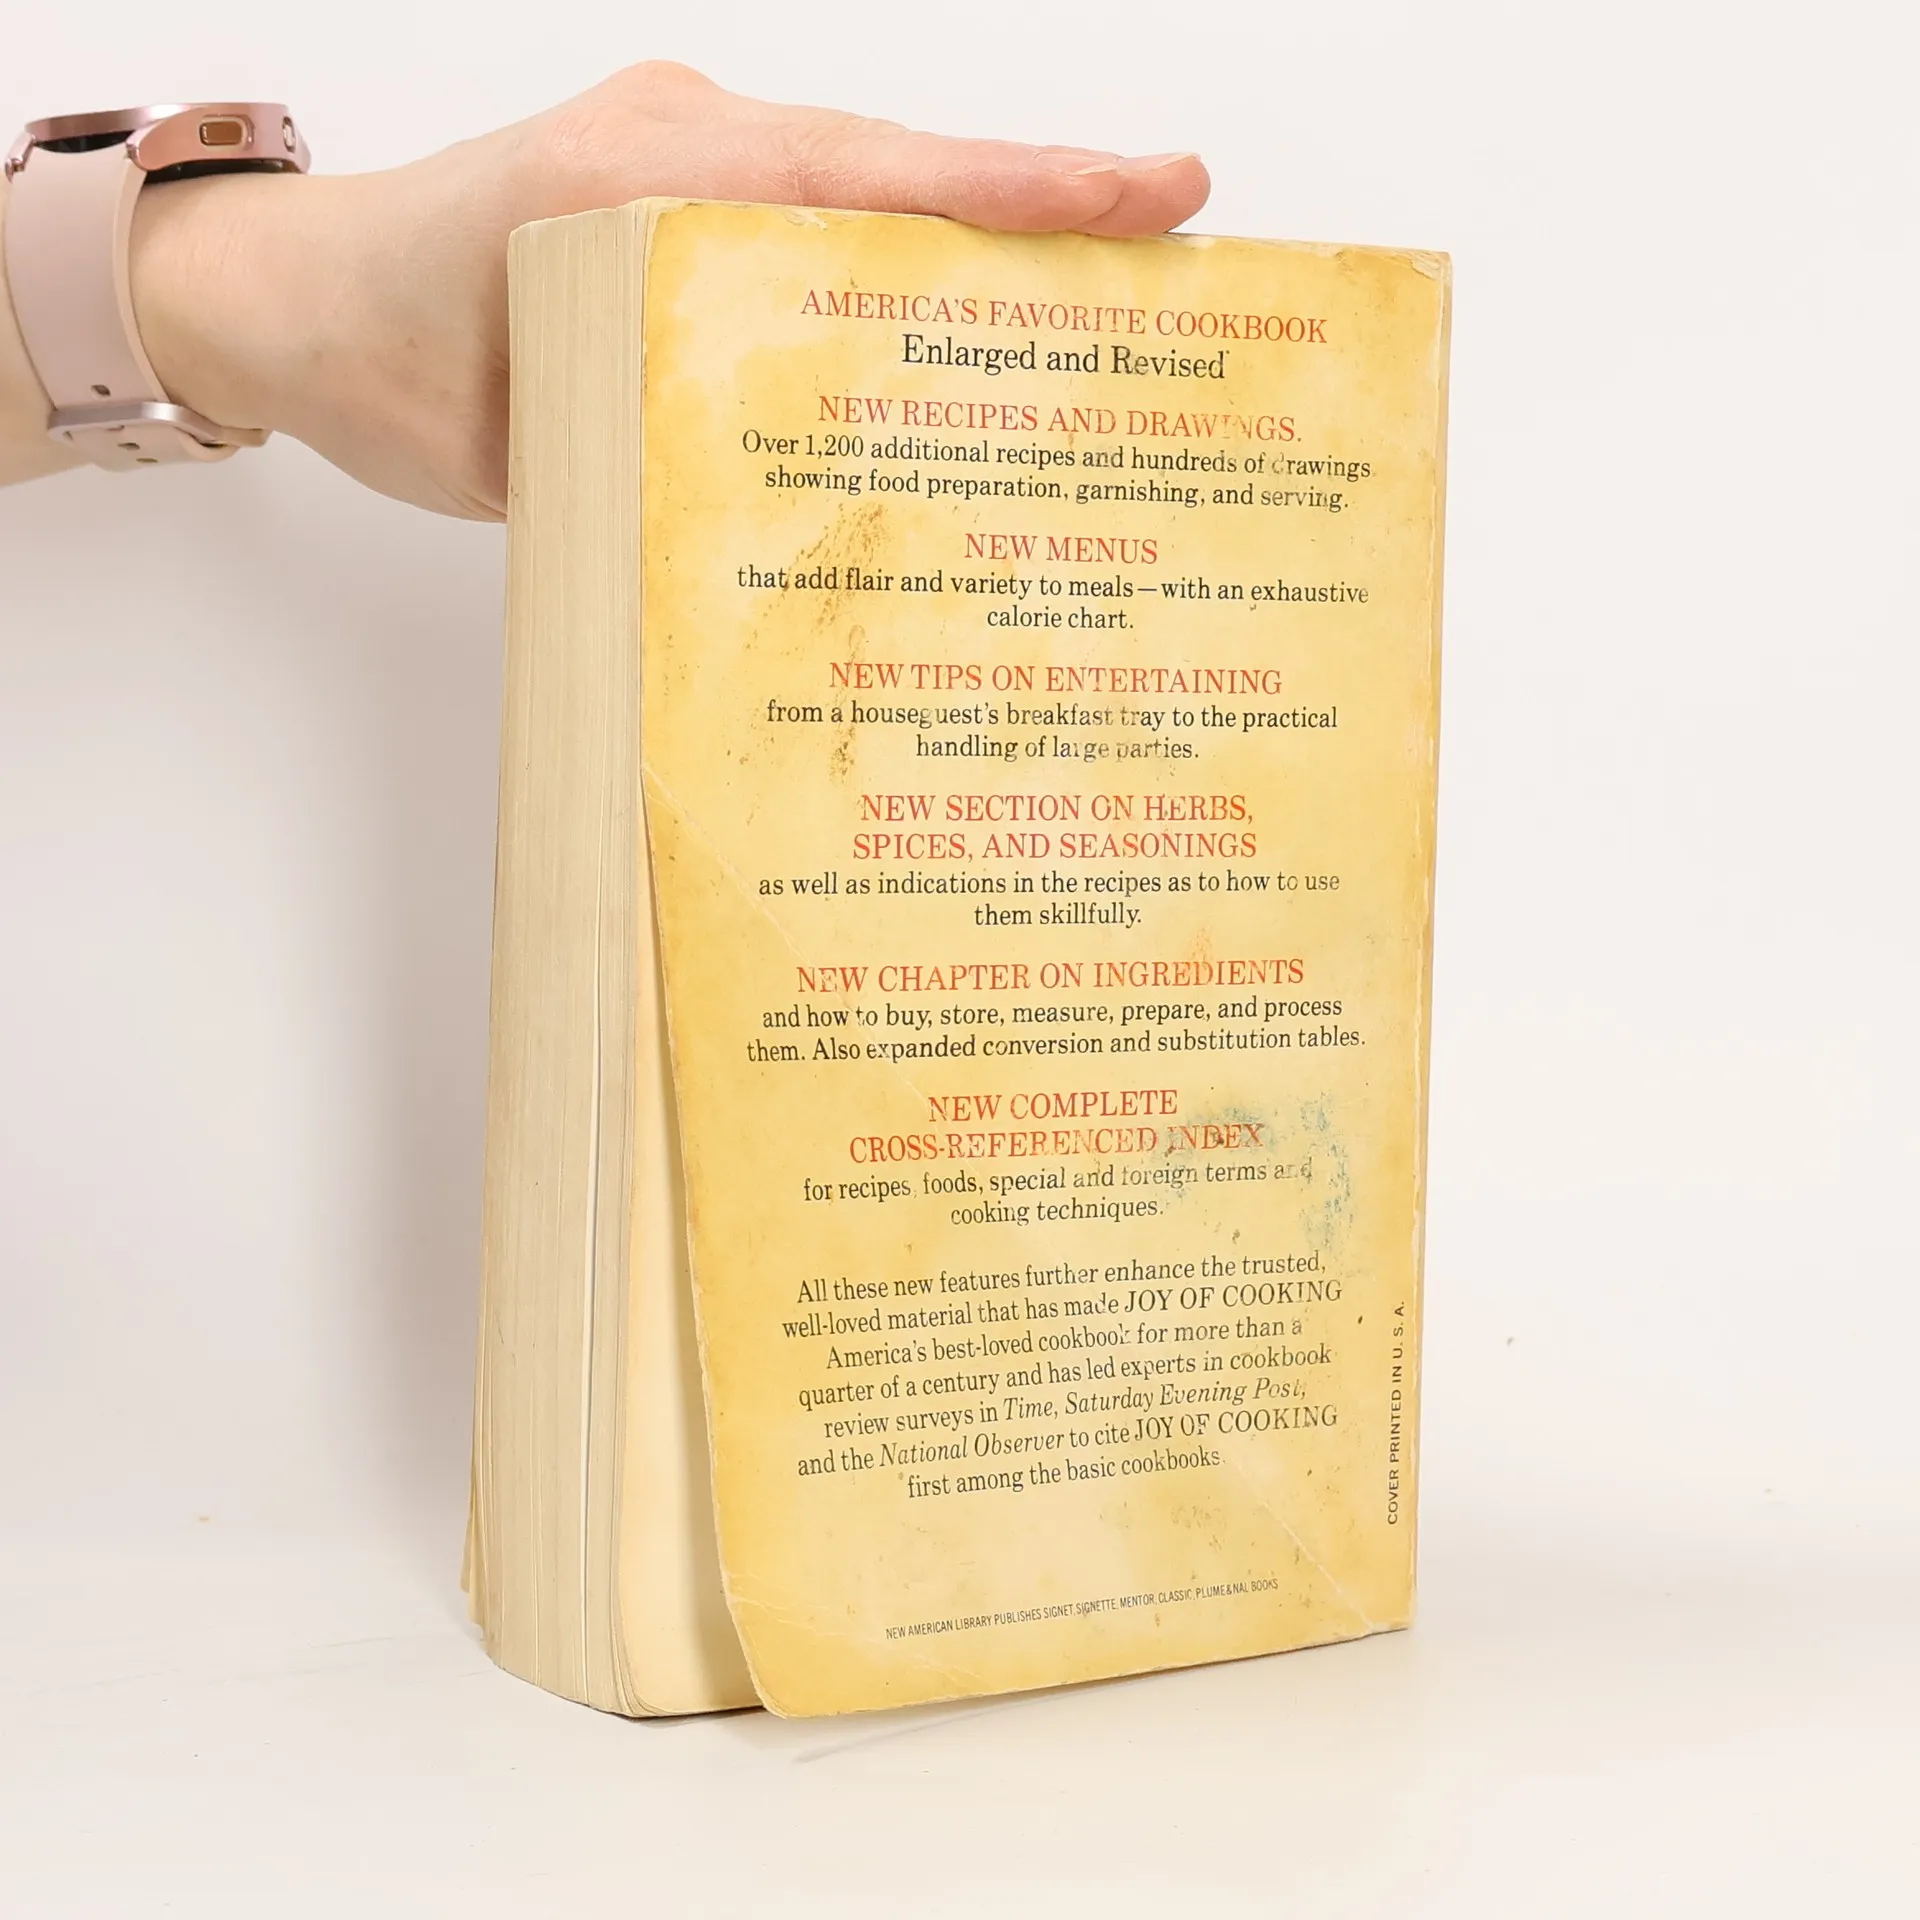 AMERICA'S FAVORITE COOKBOOK
Enlarged and Revised
NEW RECIPES AND DRAWINGS.
Over 1,200 additional recipes and hundreds of drawings
showing food preparation, garnishing, and serving.
NEW MENUS
that add flair and variety to meals—with an exhaustive
calorie chart.
NEW TIPS ON ENTERTAINING
from a houseguest's breakfast tray to the practical
handling of large parties.
NEW SECTION ON HERBS,
SPICES, AND SEASONINGS
as well as indications in the recipes as to how to use
them skillfully.
NEW CHAPTER ON INGREDIENTS
and how to buy, store, measure, prepare, and process
them. Also expanded conversion and substitution tables.
NEW COMPLETE
CROSS-REFERENCED INDEX
for recipes, foods, special and foreign terms and
cooking techniques.
All these new features further enhance the trusted,
well-loved material that has made JOY OF COOKING
America's best-loved cookbook for more than a
quarter of a century and has led experts in cookbook
review surveys in Time, Saturday Evening Post,
and the National Observer to cite JOY OF COOKING
first among the basic cookbooks.
NEW AMERICAN LIBRARY PUBLISHES SIGNET, SIGNETTE, MENTOR, CLASSIC, PLUME & NAL BOOKS
COVER PRINTED IN U. S. A.